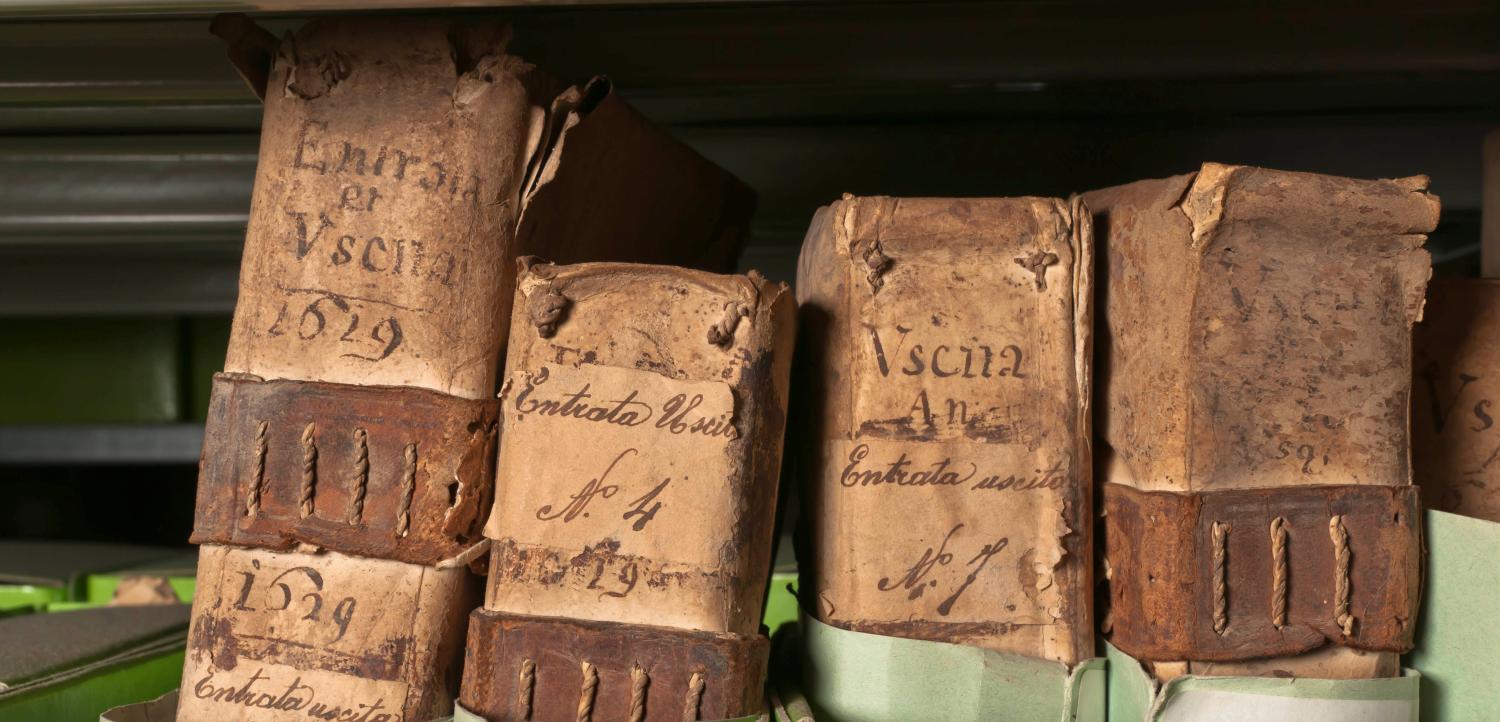 Entrata
et
Vscita
1629
1629
Entrata uscita
Entrata Uscit
N.º 4
19
Vscita
An
Entrata uscita
N.º 7
Vs